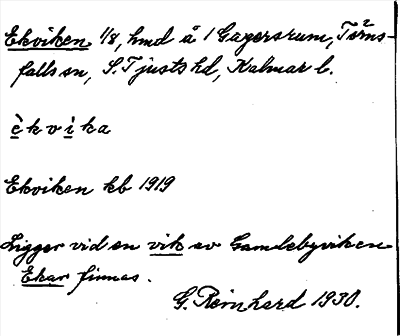 Ekviken 1/8, hmd å 1 Gagersrum, Törns-
falls sn, S. Tjusts hd, Kalmar l.
èkvìka
Ekviken kb 1919
Ligger vid en vik av Gamlebyviken
Ekar finnas.
G. Reinherd 1930.